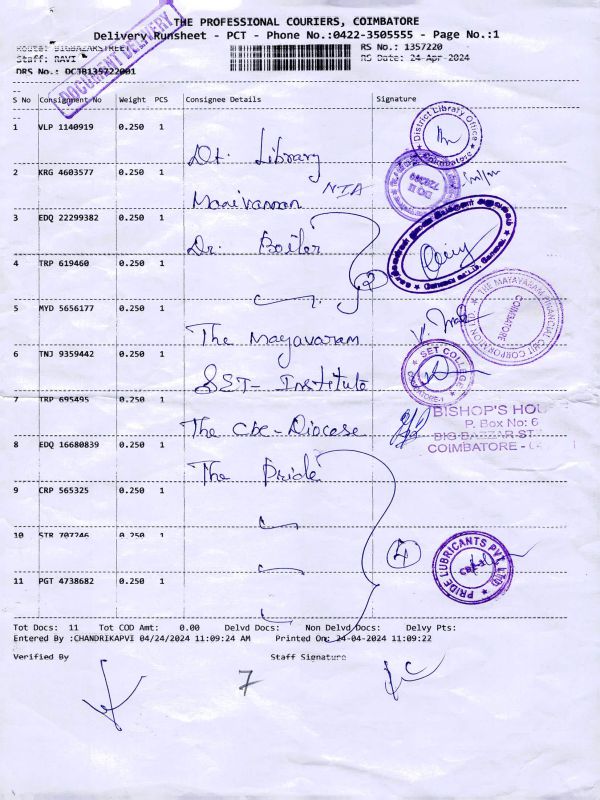 THE PROFESSIONAL COURIERS, COIMBATORE
Delivery Runsheet - PCT - Phone No.:0422-3505555 - Page No.:1
Route: BIGBAZARSTREET
RS No.: 1357220
Staff: RAVI
RS Date: 24-Apr-2024
DRS No.: DCJB135722001
DOCUMENT DELIVERY
S No Consignment No Weight PCS Consignee Details Signature
1 VLP 1140919 0.250 1 Dt. Library
District Library Office
Coimbatore
2 KRG 4603577 0.250 1 Manivannan NTA
3 EDQ 22299382 0.250 1 Dr. Boiler
4 TRP 619460 0.250 1 2
5 MYD 5656177 0.250 1 The Mayavaram
THE MAYAVARAM FINANCIAL CHIT CORPORATION LTD
COIMBATORE
6 TNJ 9359442 0.250 1 SET- Institute
SET COLLEGE
COIMBATORE-1
7 TRP 695495 0.250 1 The Cbe-Diocese
BISHOP'S HOU
P. Box No: 6
BIG BAZZAR ST
COIMBATORE -
8 EDQ 16680839 0.250 1 The Pride
9 CRP 565325 0.250 1
10 STR 707246 0.250 1 4
PRIDE LUBRICANTS PVT. LTD
11 PGT 4738682 0.250 1
Tot Docs: 11 Tot COD Amt: 0.00 Delvd Docs: Non Delvd Docs: Delvy Pts:
Entered By :CHANDRIKAPVI 04/24/2024 11:09:24 AM Printed On: 24-04-2024 11:09:22
Verified By Staff Signature
7